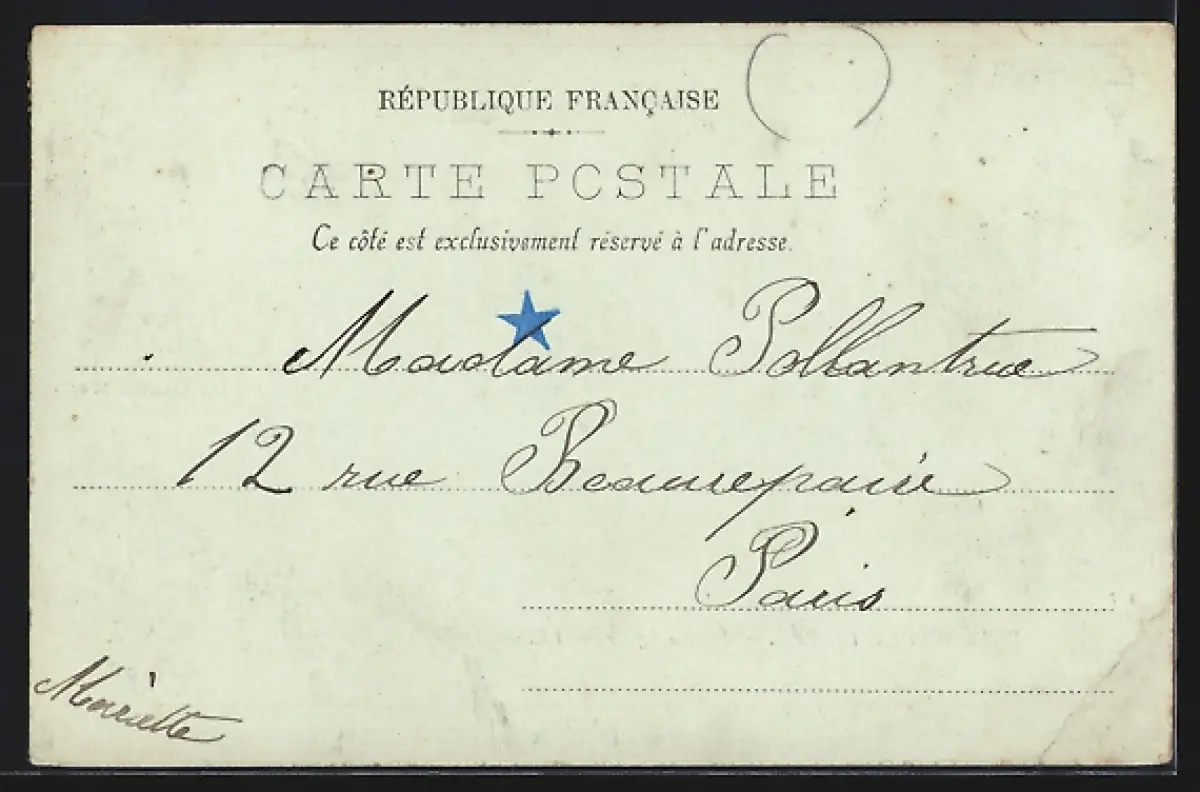 RÉPUBLIQUE FRANÇAISE
CARTE POSTALE
Ce côté est exclusivement réservé à l'adresse.
Madame Pollantrue
12 rue Beaurepaire
Paris
Mariette